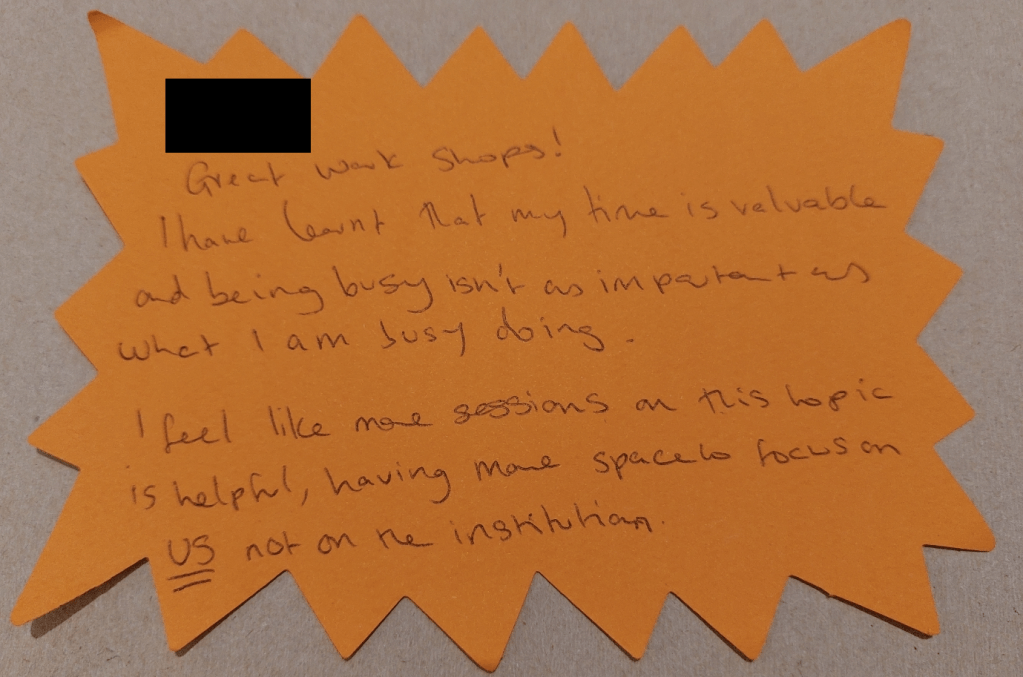 Great work shops!
I have learnt that my time is valuable
and being busy isn't as important as
what I am busy doing.
I feel like more sessions on this topic
is helpful, having more space to focus on
US not on the institution.